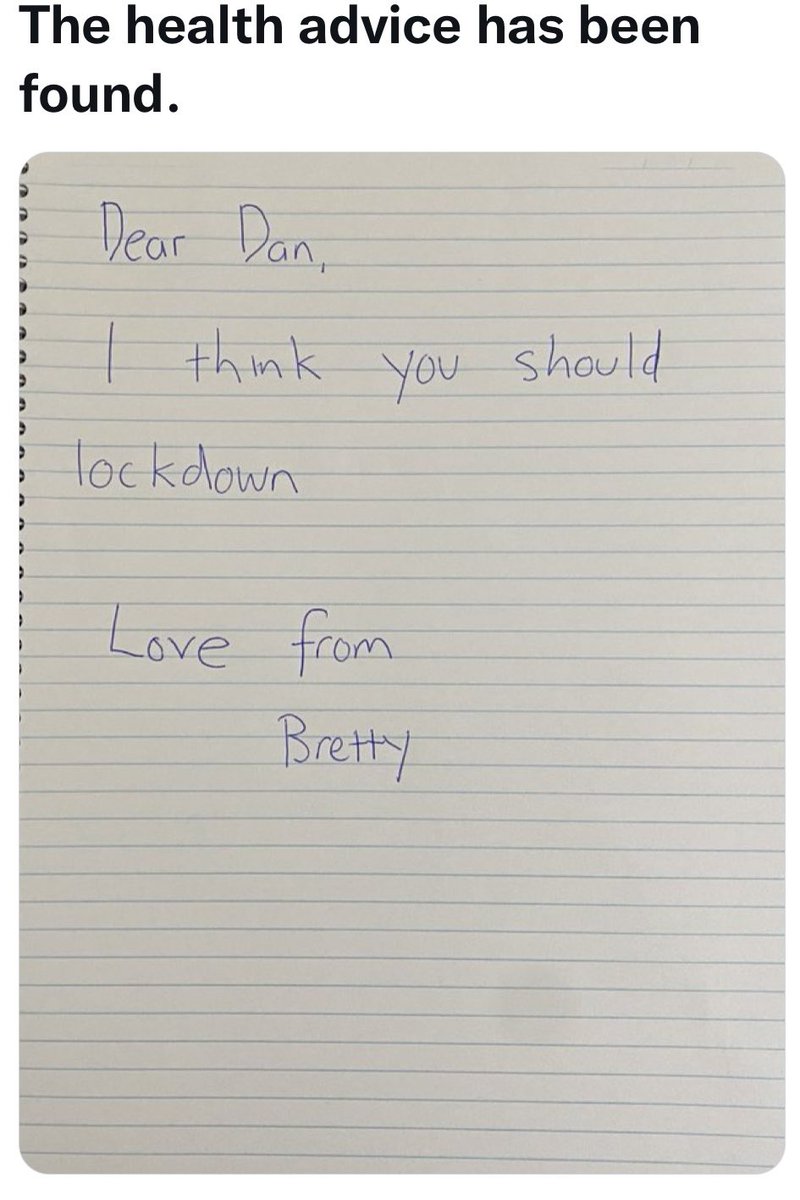 The health advice has been
found.
Dear Dan,
I think you should
lockdown
Love from
Bretty